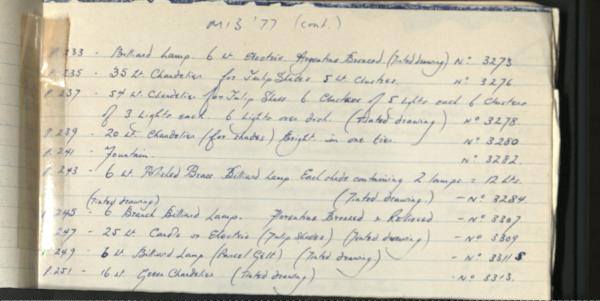 MIS '77 (cont.)
P.233 - Billiard Lamp. 6 Lt. Electric Argentine Bronzed (Tinted drawing) No 3273
P.235 - 35 Lt. Chandelier for Tulip Shades 5 Lt Clusters. No 3276
P.237 - 54 Lt. Chandelier for Tulip Shades 6 Clusters of 5 Lights each 6 Clusters
of 3 Lights each. 6 Lights over dish. (Tinted drawing) No 3278.
P.239 - 20 Lt. Chandelier (for shades) Bright in one tier. No 3280
P.241 - Fountain. No 3282.
P.243 - 6 Lt. Polished Brass Billiard Lamp. Each shade containing 2 lamps = 12 Lts.
(Tinted drawing) (Tinted drawing) - No 3284.
P.245 - 6 Branch Billiard Lamp. Florentine Bronzed & Relieved - No 3307
P.247 - 25 Lt Candle or Electric (Tulip Shades) (Tinted drawing) - No 3309
P.249 - 6 Lt Billiard Lamp (Parcel Gilt) (Tinted drawing) - No 3311 S
P.251 - 16 Lt. Green Chandelier (Tinted drawing) - No 3313.